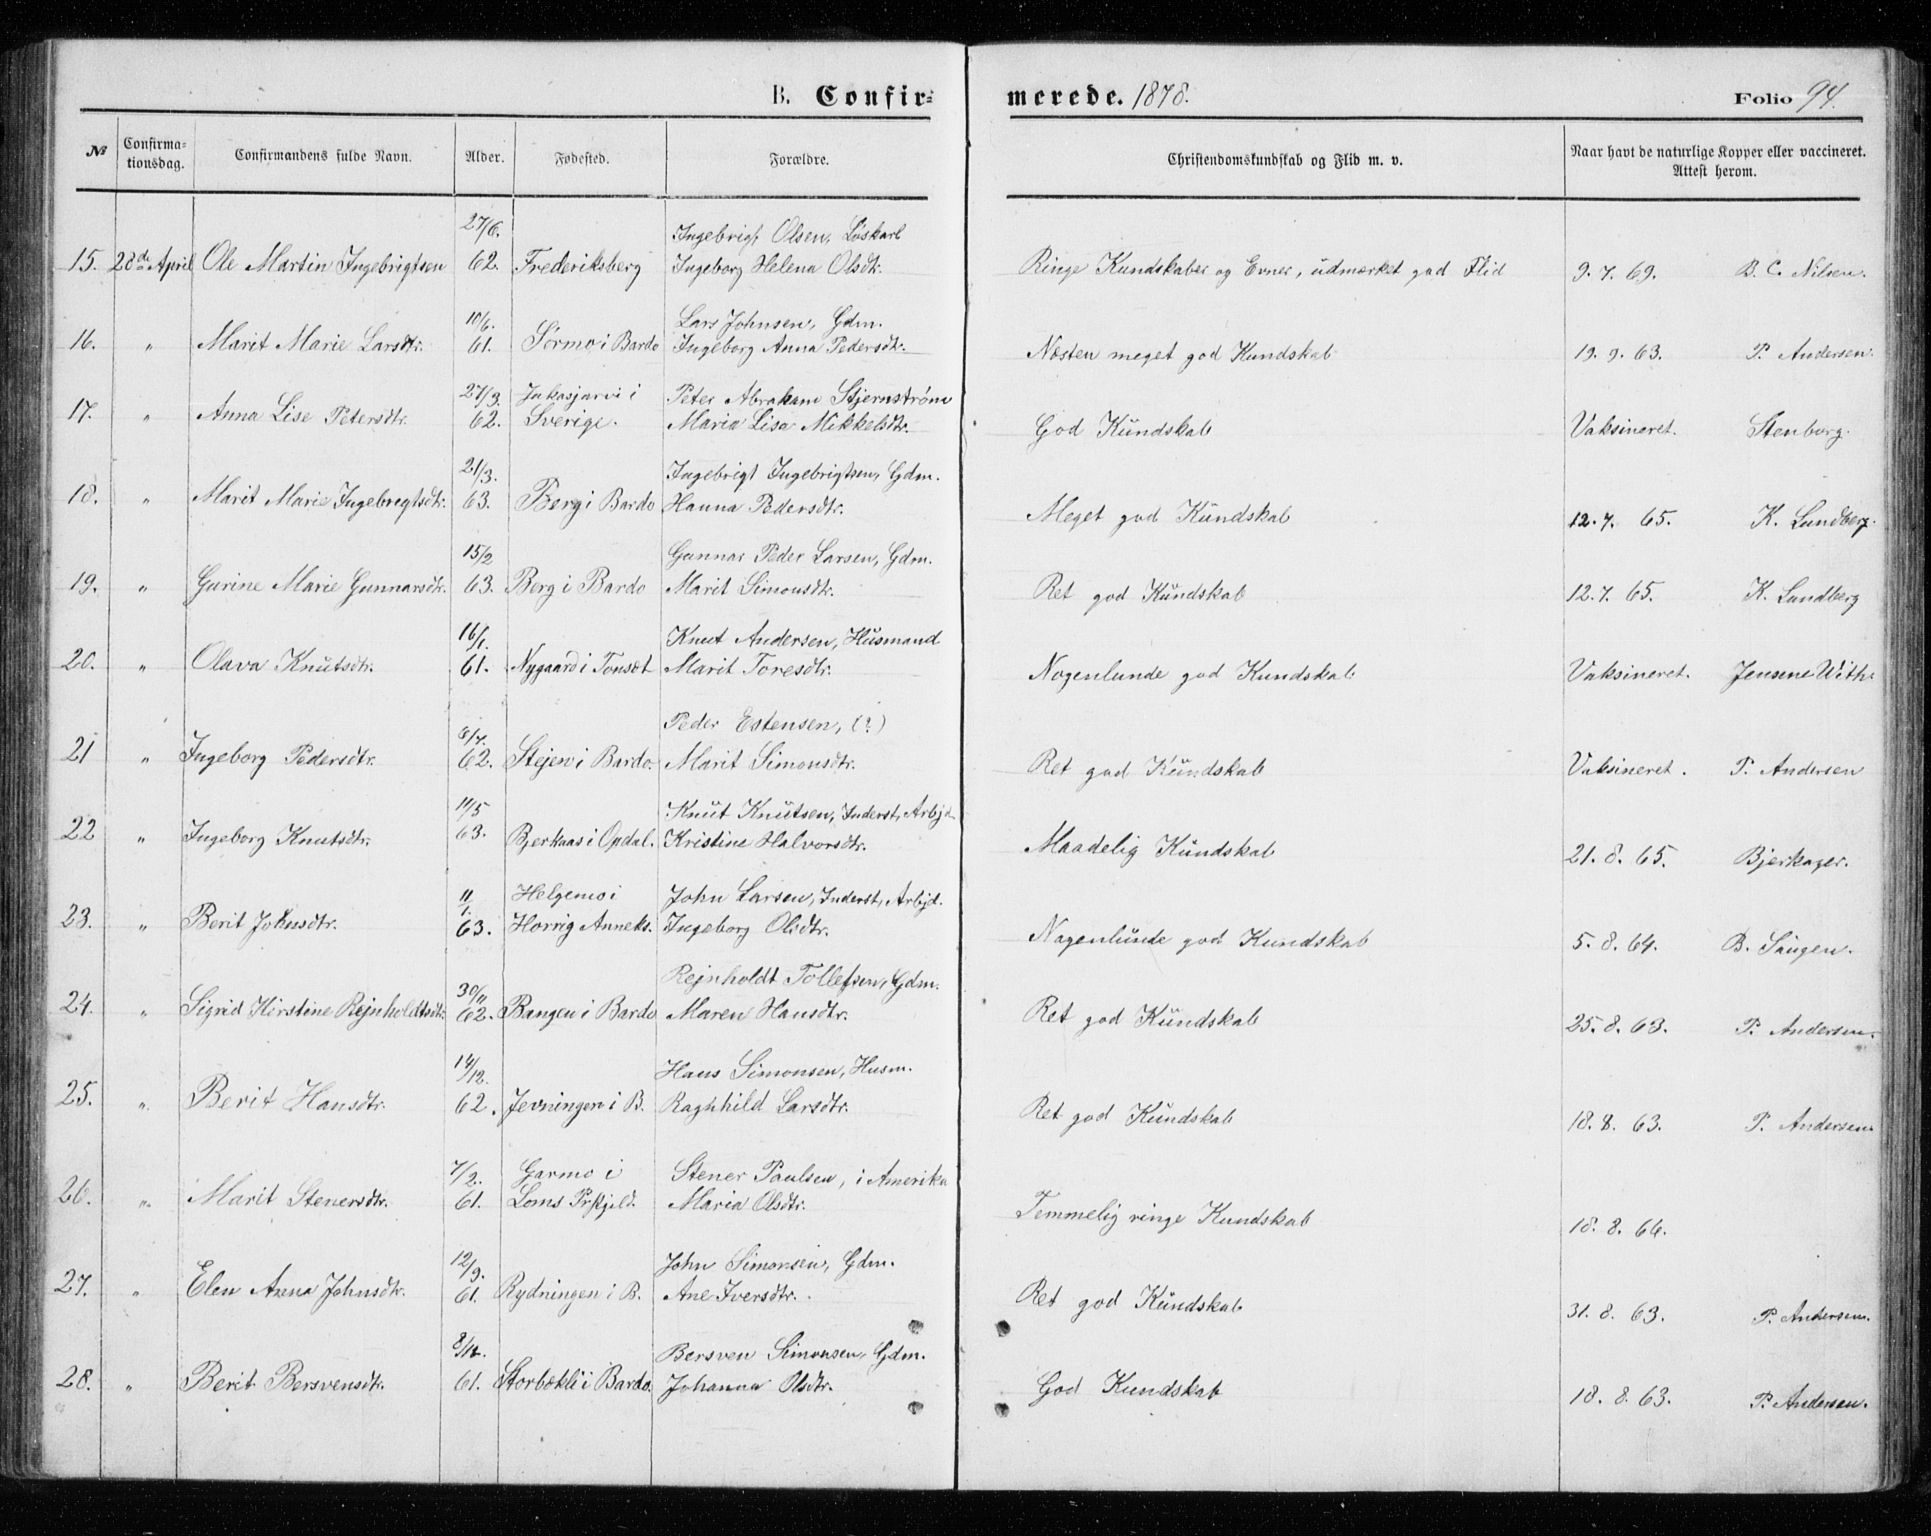 B. Confir=merede. 1878. Folio 94.
№ Confirma-tionsdag. Confirmandens fulde Navn. Alder. Fødested. Forældre. Christendomskundskab og Flid m. v. Naar havt de naturlige Kopper eller vaccineret. Attest herom.
27/6. Ingebrigt Olsen, Löskarl
15. 28de April Ole Martin Ingebrigtsen 62. Frederiksberg Ingeborg Helena Olsdtr. Ringe Kundskaber og Evner, udmærket god Flid 9. 7. 69. B. C. Nilsen.
10/6. Lars Johnsen, Gdm.
16. " Marit Marie Larsdtr. 61. Sørmo i Bardo Ingeborg Anna Pedersdtr. Næsten meget god Kundskab 19. 9. 63. P. Andersen.
27/3. Jukasjarvi i Peter Abraham Stjernstrøm
17. " Anna Lise Petersdtr. 62. Sverige. Maria Lisa Mikkelsdtr. God Kundskab Vaksineret. Stenborg.
21/3. Ingebrigt Ingebrigtsen, Gdm.
18. " Marit Marie Ingebregtsdtr. 63. Berg i Bardo Hanna Pedersdtr. Meget god Kundskab 12. 7. 65. K. Lundberg.
15/2 Gunnar Peder Larsen, Gdm.
19. " Gurine Marie Gunnarsdtr. 63. Berg i Bardo Marit Simonsdtr. Ret god Kundskab 12. 7. 65. K. Lundberg
16/1. Knut Andersen, Husmand
20. " Olava Knutsdtr. 61. Nygaard i Tonset Marit Toresdtr. Nogenlunde god Kundskab Vaksineret. Jensine With.
6/7. Peder Estensen, (?)
21 " Ingeborg Pedersdtr. 62. Stejen i Bardo. Marit Simonsdtr. Ret god Kundskab Vaksineret. P. Andersen
11/5 Knut Knutsen, Inderst, Arbjd.
22 " Ingeborg Knutsdtr. 63. Bjerkaas i Opdal. Kristine Halvorsdtr. Maadelig Kundskab 21. 8. 65. Bjerkager.
11/1. Helgemo i John Larsen, Inderst, Arbjd.
23. " Berit Johnsdtr. 63. Horrig Anneks. Ingeborg Olsdtr. Nogenlunde god Kundskab 5. 8. 64. B. Saugen.
30/11 Rejnholdt Tollefsen, Gdm.
24. " Sigrid Kirstine Rejnholdtsdtr. 62. Bangen i Bardo Maren Hansdtr. Ret god Kundskab 25. 8. 63. P. Andersen.
14/12. Hans Simonsen, Husm.
25. " Berit Hansdtr. 62. Jevningen i B. Raghhild Larsdtr. Ret god Kundskab 18. 8. 63. P. Andersen
7/2. Garmo i Stener Paulsen, i Amerika
26. " Marit Stenersdtr. 61. Loms Prstgjeld. Maria Olsdtr. Temmelig ringe Kundskab 18. 8. 66.
12/9. John Simonsen, Gdm.
27. " Elen Anna Johnsdtr. 61. Rydningen i B. Ane Iversdtr. Ret god Kundskab 31. 8. 63. P. Andersen.
8/12. Bersven Simonsen, Gdm.
28. " Berit Bersvensdtr. 61. Storbækli i Bardo. Johanna Olsdtr. God Kundskab 18. 8. 63. P. Andersen.